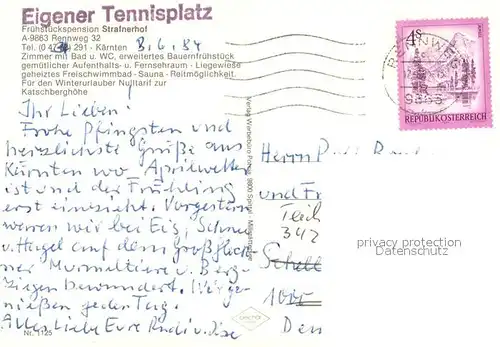 Eigener Tennisplatz
Frühstückspension Strafnerhof
A-9863 Rennweg 32
Tel. (0 47 34) 291 - Kärnten
Zimmer mit Bad u. WC, erweitertes Bauernfrühstück
gemütlicher Aufenthalts- u. Fernsehraum - Liegewiese
geheiztes Freischwimmbad - Sauna - Reitmöglichkeit.
Für den Winterurlauber Nulltarif zur
Katschberghöhe
3.6.84
Ihr Lieben!
Frohe Pfingsten und
herzlichste Grüße aus
Kärnten wo Aprilwetter
ist und der Frühling
erst einzieht. Vorgestern
waren wir bei Eis, Schnee
u. Hagel auf dem Großglock-
ner Murmeltiere u. Berg-
ziegen bewundert. Wir ge-
nießen jeden Tag.
Alles Liebe Eure Rudi u. Ilse
Nr. 1125
Verlag
4S
REPUBLIK ÖSTERREICH
RENNWEG
9863
Herrn
und Fr
Teich
342
privacy protection
Datenschutz